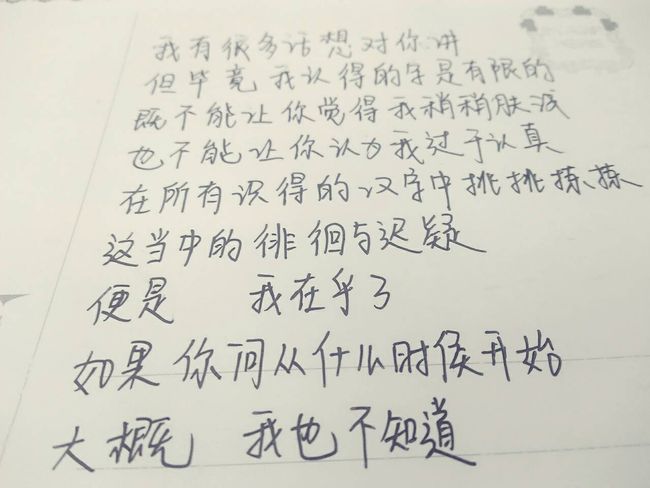 我有很多话想对你讲
但毕竟我认得的字是有限的
既不能让你觉得我稍稍肤浅
也不能让你认为我过于认真
在所有识得的汉字中挑挑拣拣
这当中的徘徊与迟疑
便是 我在乎了
如果你问从什么时候开始
大概 我也不知道